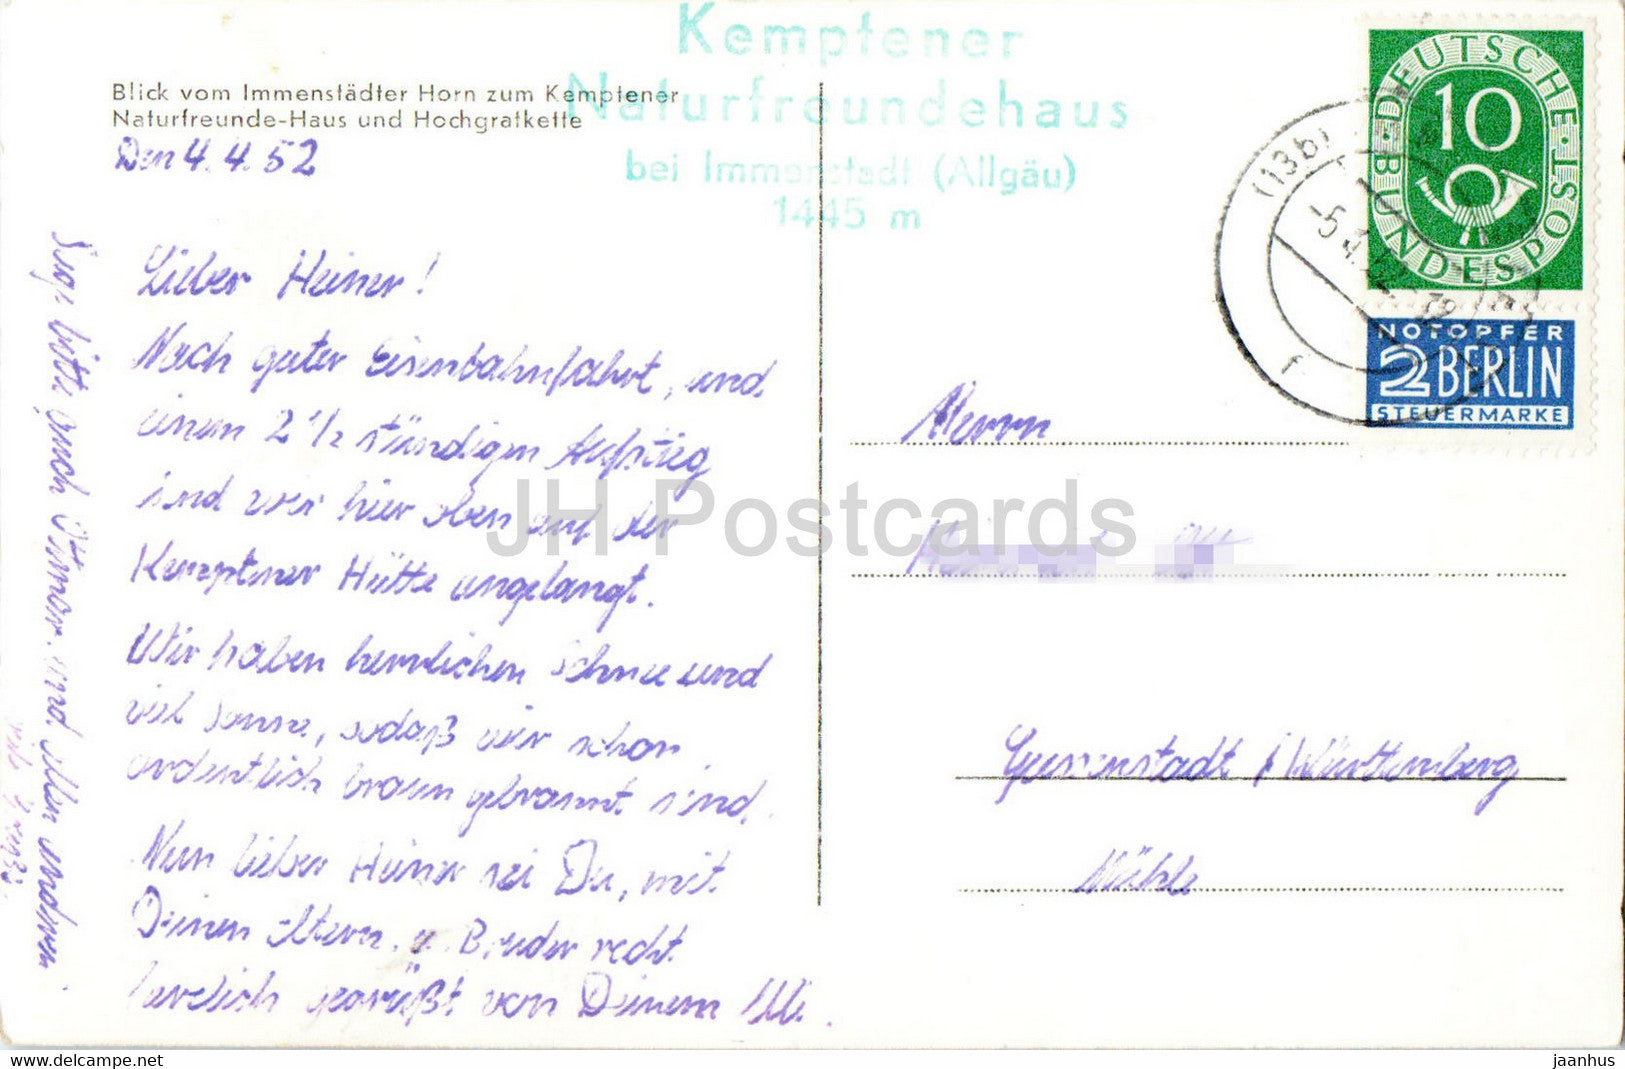 Kemptener
Naturfreundehaus
bei Immenstadt (Allgäu)
1445 m
Blick vom Immenstädter Horn zum Kemptener
Naturfreunde-Haus und Hochgratkette
Den 4. 4. 52
Lieber Heiner!
Nach guter Eisenbahnfahrt, und
einem 2 1/2 stündigen Aufstieg
sind wir hier oben auf der
Kemptener Hütte angelangt.
Wir haben herrlichen Schnee und
viel Sonne, sodaß wir schon
ordentlich braun gebrannt sind.
Nun lieber Heiner sei Du, mit
Deinen Eltern u. Bruder recht
herzlich gegrüßt von Deinem Uli.
Sage bitte auch Otmar. und allen andern
viele Grüße.
DEUTSCHE BUNDESPOST
10
NOTOPFER
2 BERLIN
STEUERMARKE
(13b)
-5.4.52
f
Herrn
Gussenstadt / Württemberg
Mühle
JH Postcards
www.delcampe.net
jaanhus